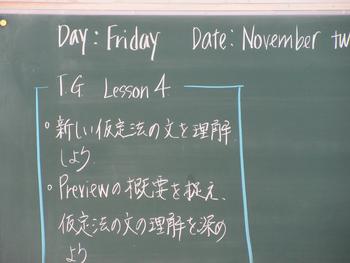 Day: Friday Date: November tw
T.G Lesson 4
◦ 新しい仮定法の文を理解
しよう
◦ Previewの概要を捉え、
仮定法の文の理解を深め
よう